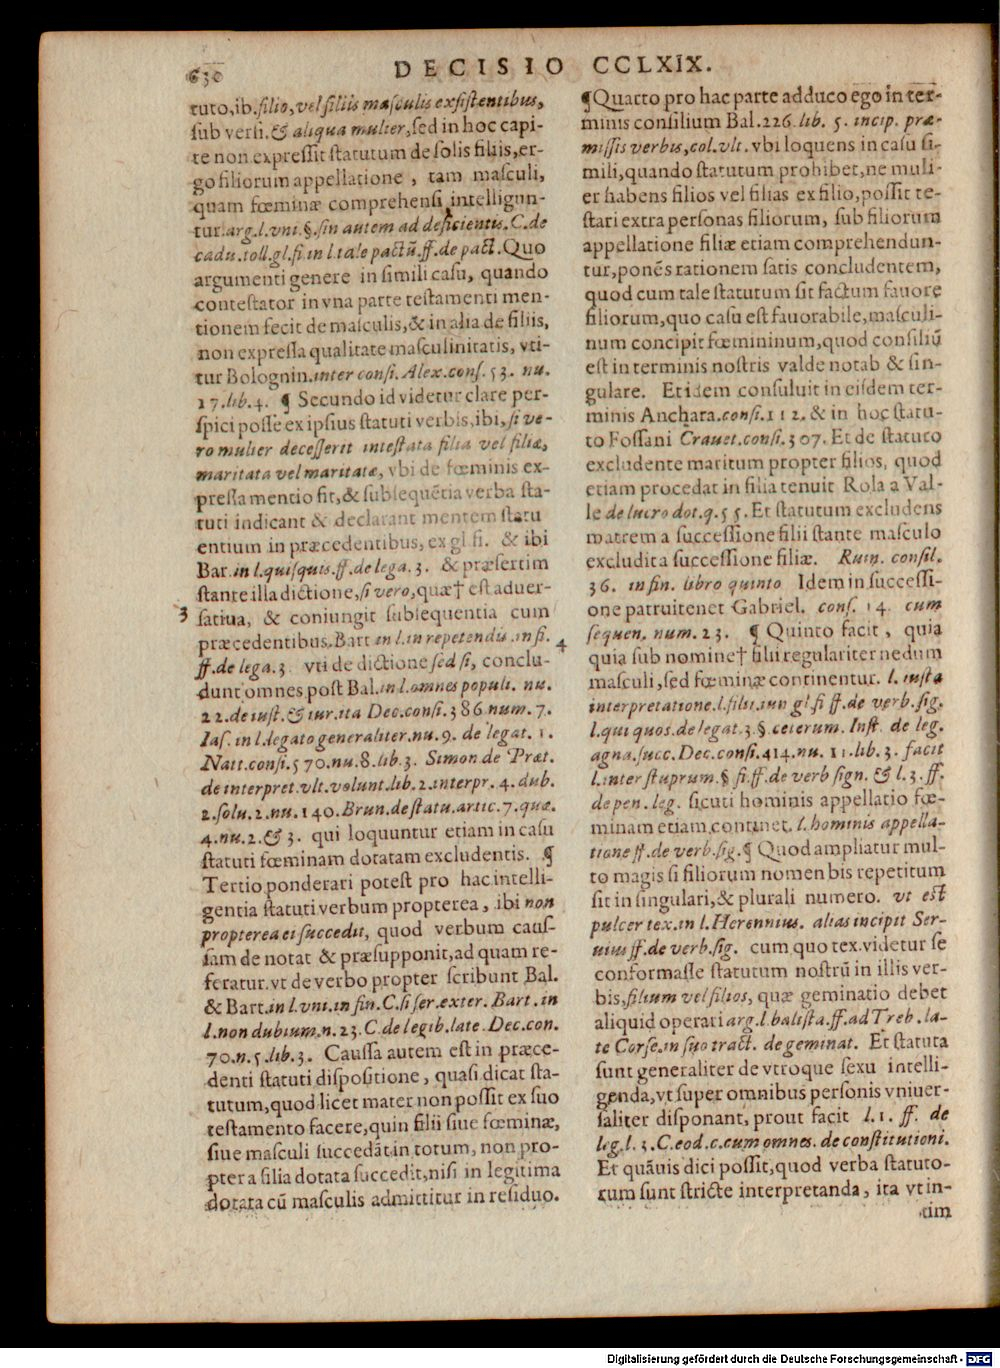 630
DECISIO CCLXIX.
tuto, ib. filio, vel filiis masculis exsistentibus,
sub versi. & aliqua mulier, sed in hoc capi-
te non expressit statutum de solis filiis, er-
go filiorum appellatione, tam masculi,
quam fœminæ comprehensi intelligun-
tur. arg. l. vni. §. sin autem ad deficientis. C. de
cadu. toll. gl. fi. in l. tale pactū. ff. de pact. Quo
argumenti genere in simili casu, quando
contestator in vna parte testamenti men-
tionem fecit de masculis, & in alia de filiis,
non expressa qualitate masculinitatis, vti-
tur Bolognin. inter consi. Alex. cons. 53. nu.
27. lib. 4. ¶ Secundo id videtur clare per-
spici posse ex ipsius statuti verbis, ibi, si ve-
ro mulier decesserit intestata filia vel filiæ,
maritata vel maritatæ, vbi de fœminis ex-
pressa mentio fit, & subsequētia verba sta-
tuti indicant & declarant mentem statu
entium in præcedentibus, ex gl. fi. & ibi
Bar. in l. quisquis. ff. de lega. 3. & præsertim
stante illa dictione, si vero, quæ† est aduer-
3 satiua, & coniungit subsequentia cum
præcedentibus. Bart. in l. in repetendis. in fi.
ff. de lega. 3. vti de dictione sed si, conclu-
dunt omnes post Bal. in l. omnes populi. nu.
22. de iust. & iur. ita Dec. consi. 386. num. 7.
Ias. in l. legato generaliter. nu. 9. de legat. 1.
Natt. consi. 570. nu. 8. lib. 3. Simon de Præt.
de interpret. vlt. volunt. lib. 2. interpr. 4. dub.
2. solu. 2. nu. 140. Brun. de statu. artic. 7. quæ.
4. nu. 2. & 3. qui loquuntur etiam in casu
statuti fœminam dotatam excludentis. ¶
Tertio ponderari potest pro hac intelli-
gentia statuti verbum propterea, ibi non
propterea ei succedit, quod verbum caus-
sam denotat & præsupponit, ad quam re-
feratur. vt de verbo propter scribunt Bal.
& Bart. in l. vni. in fin. C. si ser. exter. Bart. in
l. non dubium. n. 23. C. de legib. late. Dec. con.
70. n. 5. lib. 3. Caussa autem est in præce-
denti statuti dispositione, quasi dicat sta-
tutum, quod licet mater non possit ex suo
testamento facere, quin filii siue fœminæ,
siue masculi succedāt in totum, non pro-
pter a filia dotata succedit, nisi in legitima
dotata cū masculis admittitur in residuo.
¶ Quarto pro hac parte adduco ego in ter-
minis consilium Bal. 226. lib. 5. incip. præ-
missis verbis, col. vlt. vbi loquens in casu si-
mili, quando statutum prohibet, ne muli-
er habens filios vel filias ex filio, possit te-
stari extra personas filiorum, sub filiorum
appellatione filiæ etiam comprehendun-
tur, ponēs rationem satis concludentem,
quod cum tale statutum sit factum fauore
filiorum, quo casu est fauorabile, masculi-
num concipit fœmininum, quod consiliū
est in terminis nostris valde notab & sin-
gulare. Et idem consuluit in eisdem ter-
minis Anchara. consi. 112. & in hoc statu-
to Fossani Crauet. consi. 307. Et de statuto
excludente maritum propter filios, quod
etiam procedat in filia tenuit Rola a Val-
le de lucro dot. q. 55. Et statutum excludens
matrem a successione filii stante masculo
excludit a successione filiæ. Ruin. consil.
36. in fin. libro quinto Idem in successi-
one patrui tenet Gabriel. cons. 14. cum
sequen. num. 23. ¶ Quinto facit, quia
4 quia sub nomine† filii regulariter nedum
masculi, sed fœminæ continentur. l. iusta
interpretatione. l. filii. iun gl. fi ff. de verb. sig.
l. qui quos. de legat. 3. §. ceterum. Inst. de leg.
agna. succ. Dec. consi. 414. nu. 11. lib. 3. facit
l. inter stuprum. § fi. ff. de verb sign. & l. 3. ff.
de pen. leg. sicuti hominis appellatio fœ-
minam etiam continet. l. hominis appella-
tione ff. de verb. sig. ¶ Quod ampliatur mul-
to magis si filiorum nomen bis repetitum
sit in singulari, & plurali numero. vt est
pulcer tex. in l. Herennius. alias incipit Ser-
uius ff. de verb. sig. cum quo tex. videtur se
conformasse statutum nostrū in illis ver-
bis, filium vel filios, quæ geminatio debet
aliquid operari arg. l. balista. ff. ad Treb. la-
te Corse. in suo tract. de geminat. Et statuta
sunt generaliter de vtroque sexu intelli-
genda, vt super omnibus personis vniuer-
saliter disponant, prout facit l. 1. ff. de
leg. l. 3. C. eod. c. cum omnes. de constitutioni.
Et quāuis dici possit, quod verba statuto-
rum sunt stricte interpretanda, ita vt in-
tim
Digitalisierung gefördert durch die Deutsche Forschungsgemeinschaft - DFG